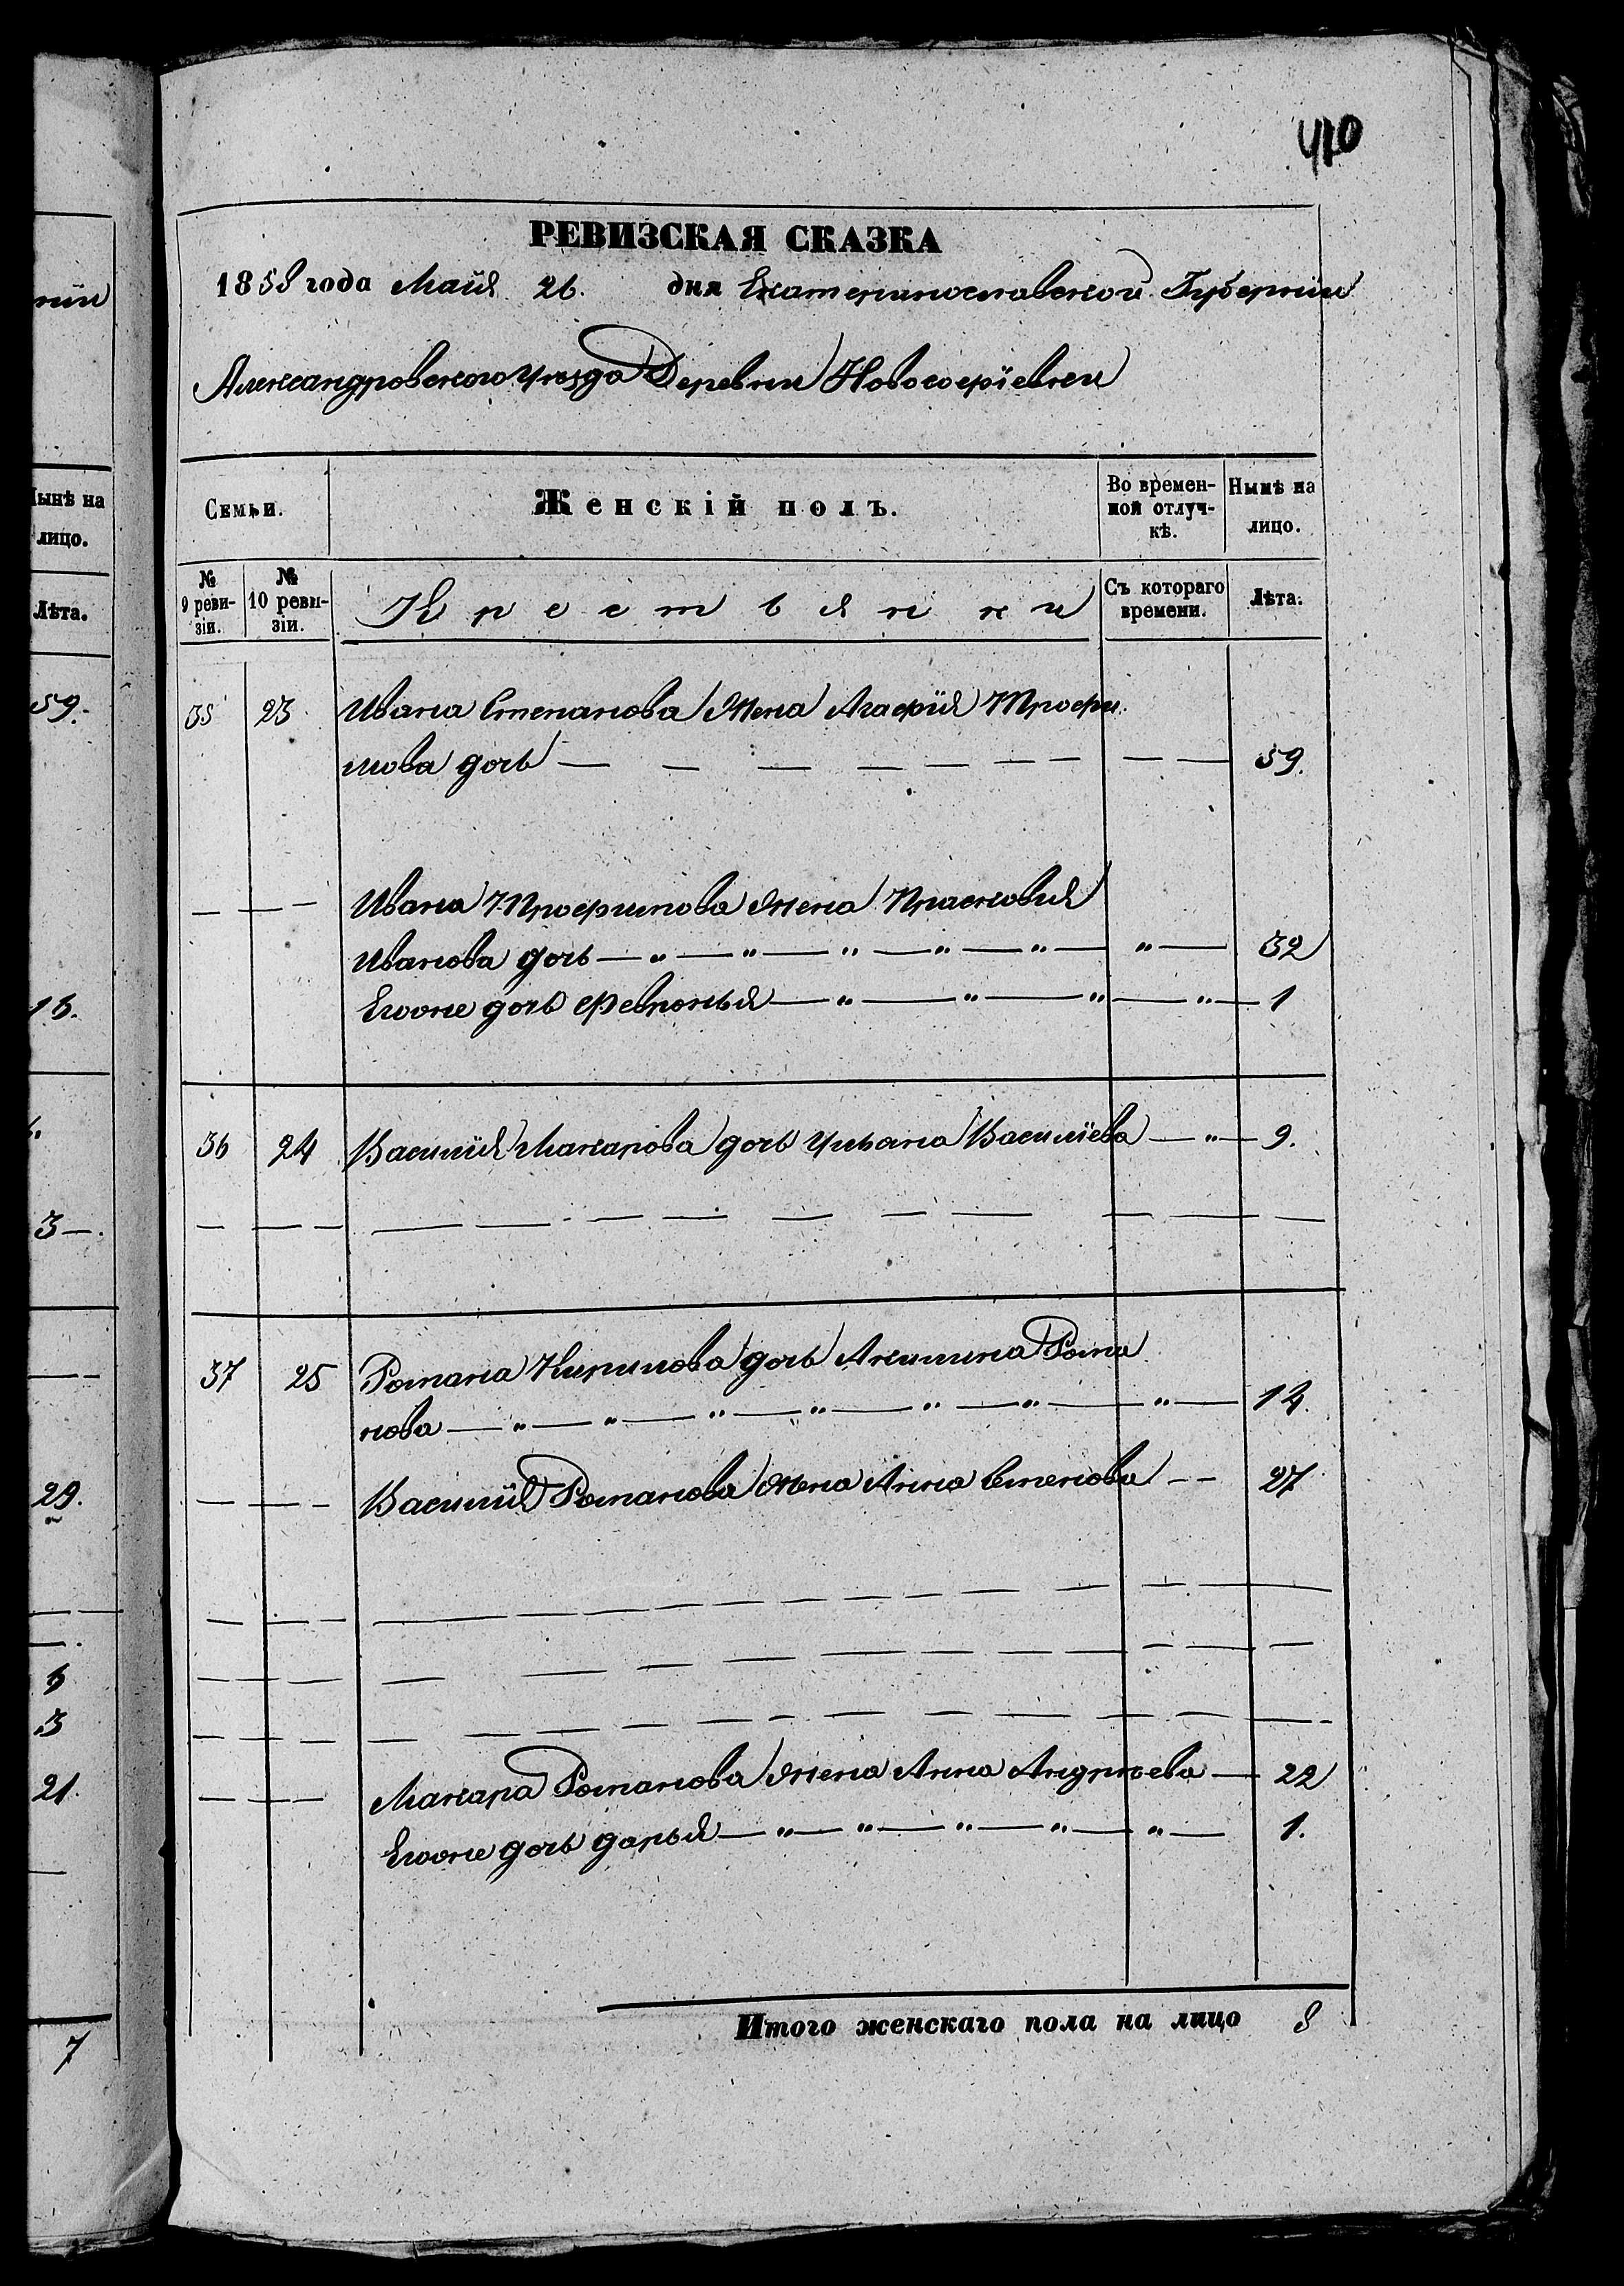 410
РЕВИЗСКАЯ СКАЗКА
1858 года Маия 26. дня Екатеринославской Губернии
Александровского уезда Деревни Новософіевки
Семьи.
Женскій полъ.
Во времен-
ной отлуч-
кѣ.
Нынѣ на
лицо.
№
9 реви-
зіи.
№
10 реви-
зіи.
Крестьянки
Съ котораго
времени.
Лѣта.
35 23 Ивана Степанова Жена Агафія Трофи
мова дочь — — — — — — — — — 59.
— — — Ивана Трофимова жена Прасковия
Иванова дочь — „ — „ — „ — „ — „ — „ — 32
Егоже дочь Февронья — „ — „ — „ — „ — 1
36 24 Василія Макарова дочь Ульяна Василіева — „ — 9.
37 25 Романа Кирилова дочь Акилина Рома
нова — „ — „ — „ — „ — „ — „ — „ — 14.
— — — Василія Романова жена Анна Степнова — — 27
— — — Макара Романова жена Анна Андрѣева — 22
Егоже дочь дарья — „ — „ — „ — „ — „ — 1.
Итого женскаго пола на лицо 8
нии
Нынѣ на
лицо.
Лѣта.
59.
16.
3 —.
29.
6
3
21.
7